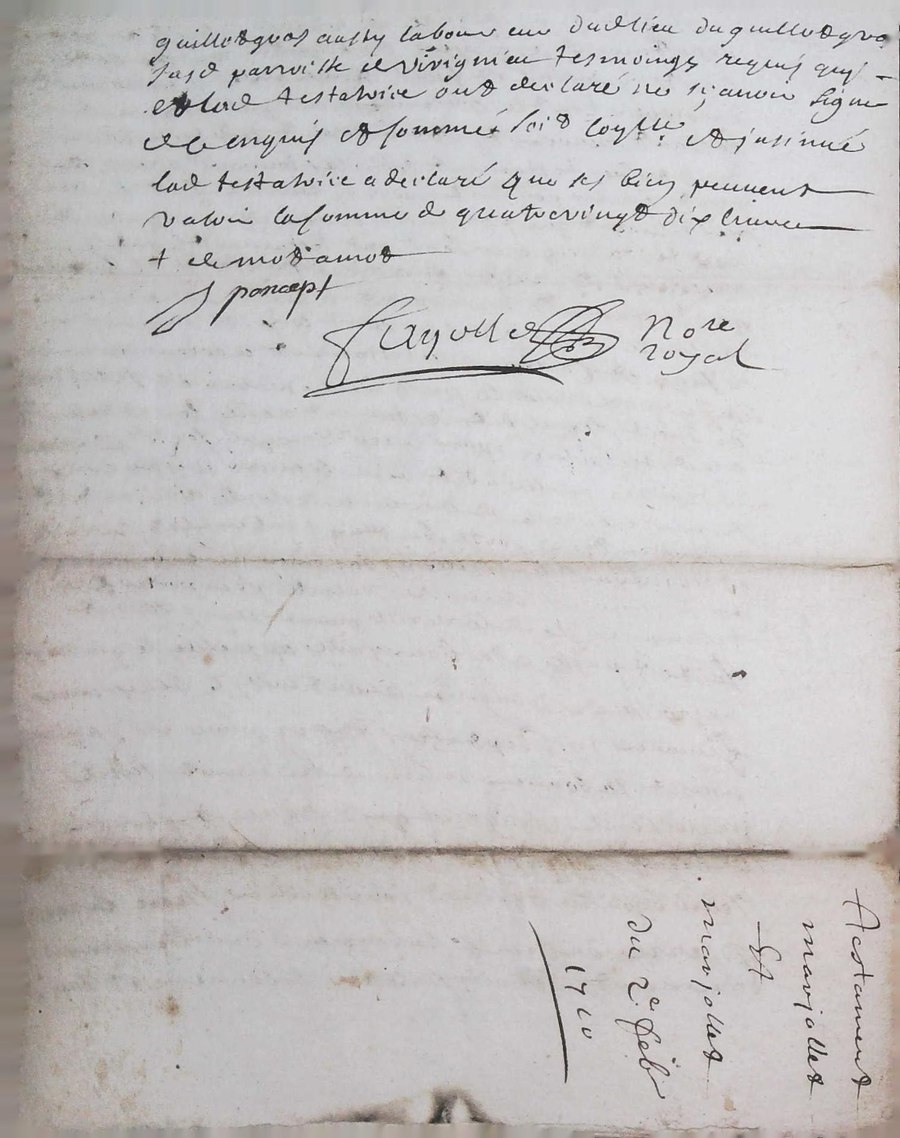 aussy laboureur dud lieu du
susd parroisse de tesmoings requis quj
et lad testatrice ont declaré ne sçavoir signe
de ce enquis et sommé et jnsinué
lad testatrice a declaré que ses biens peuvent
valoir la somme de quatrevingt dix livres
+ de mot a mot
p or coept
Fayolle Nore
royal
Testament
marjollet
Et
marjollet
du 2e feb
1710